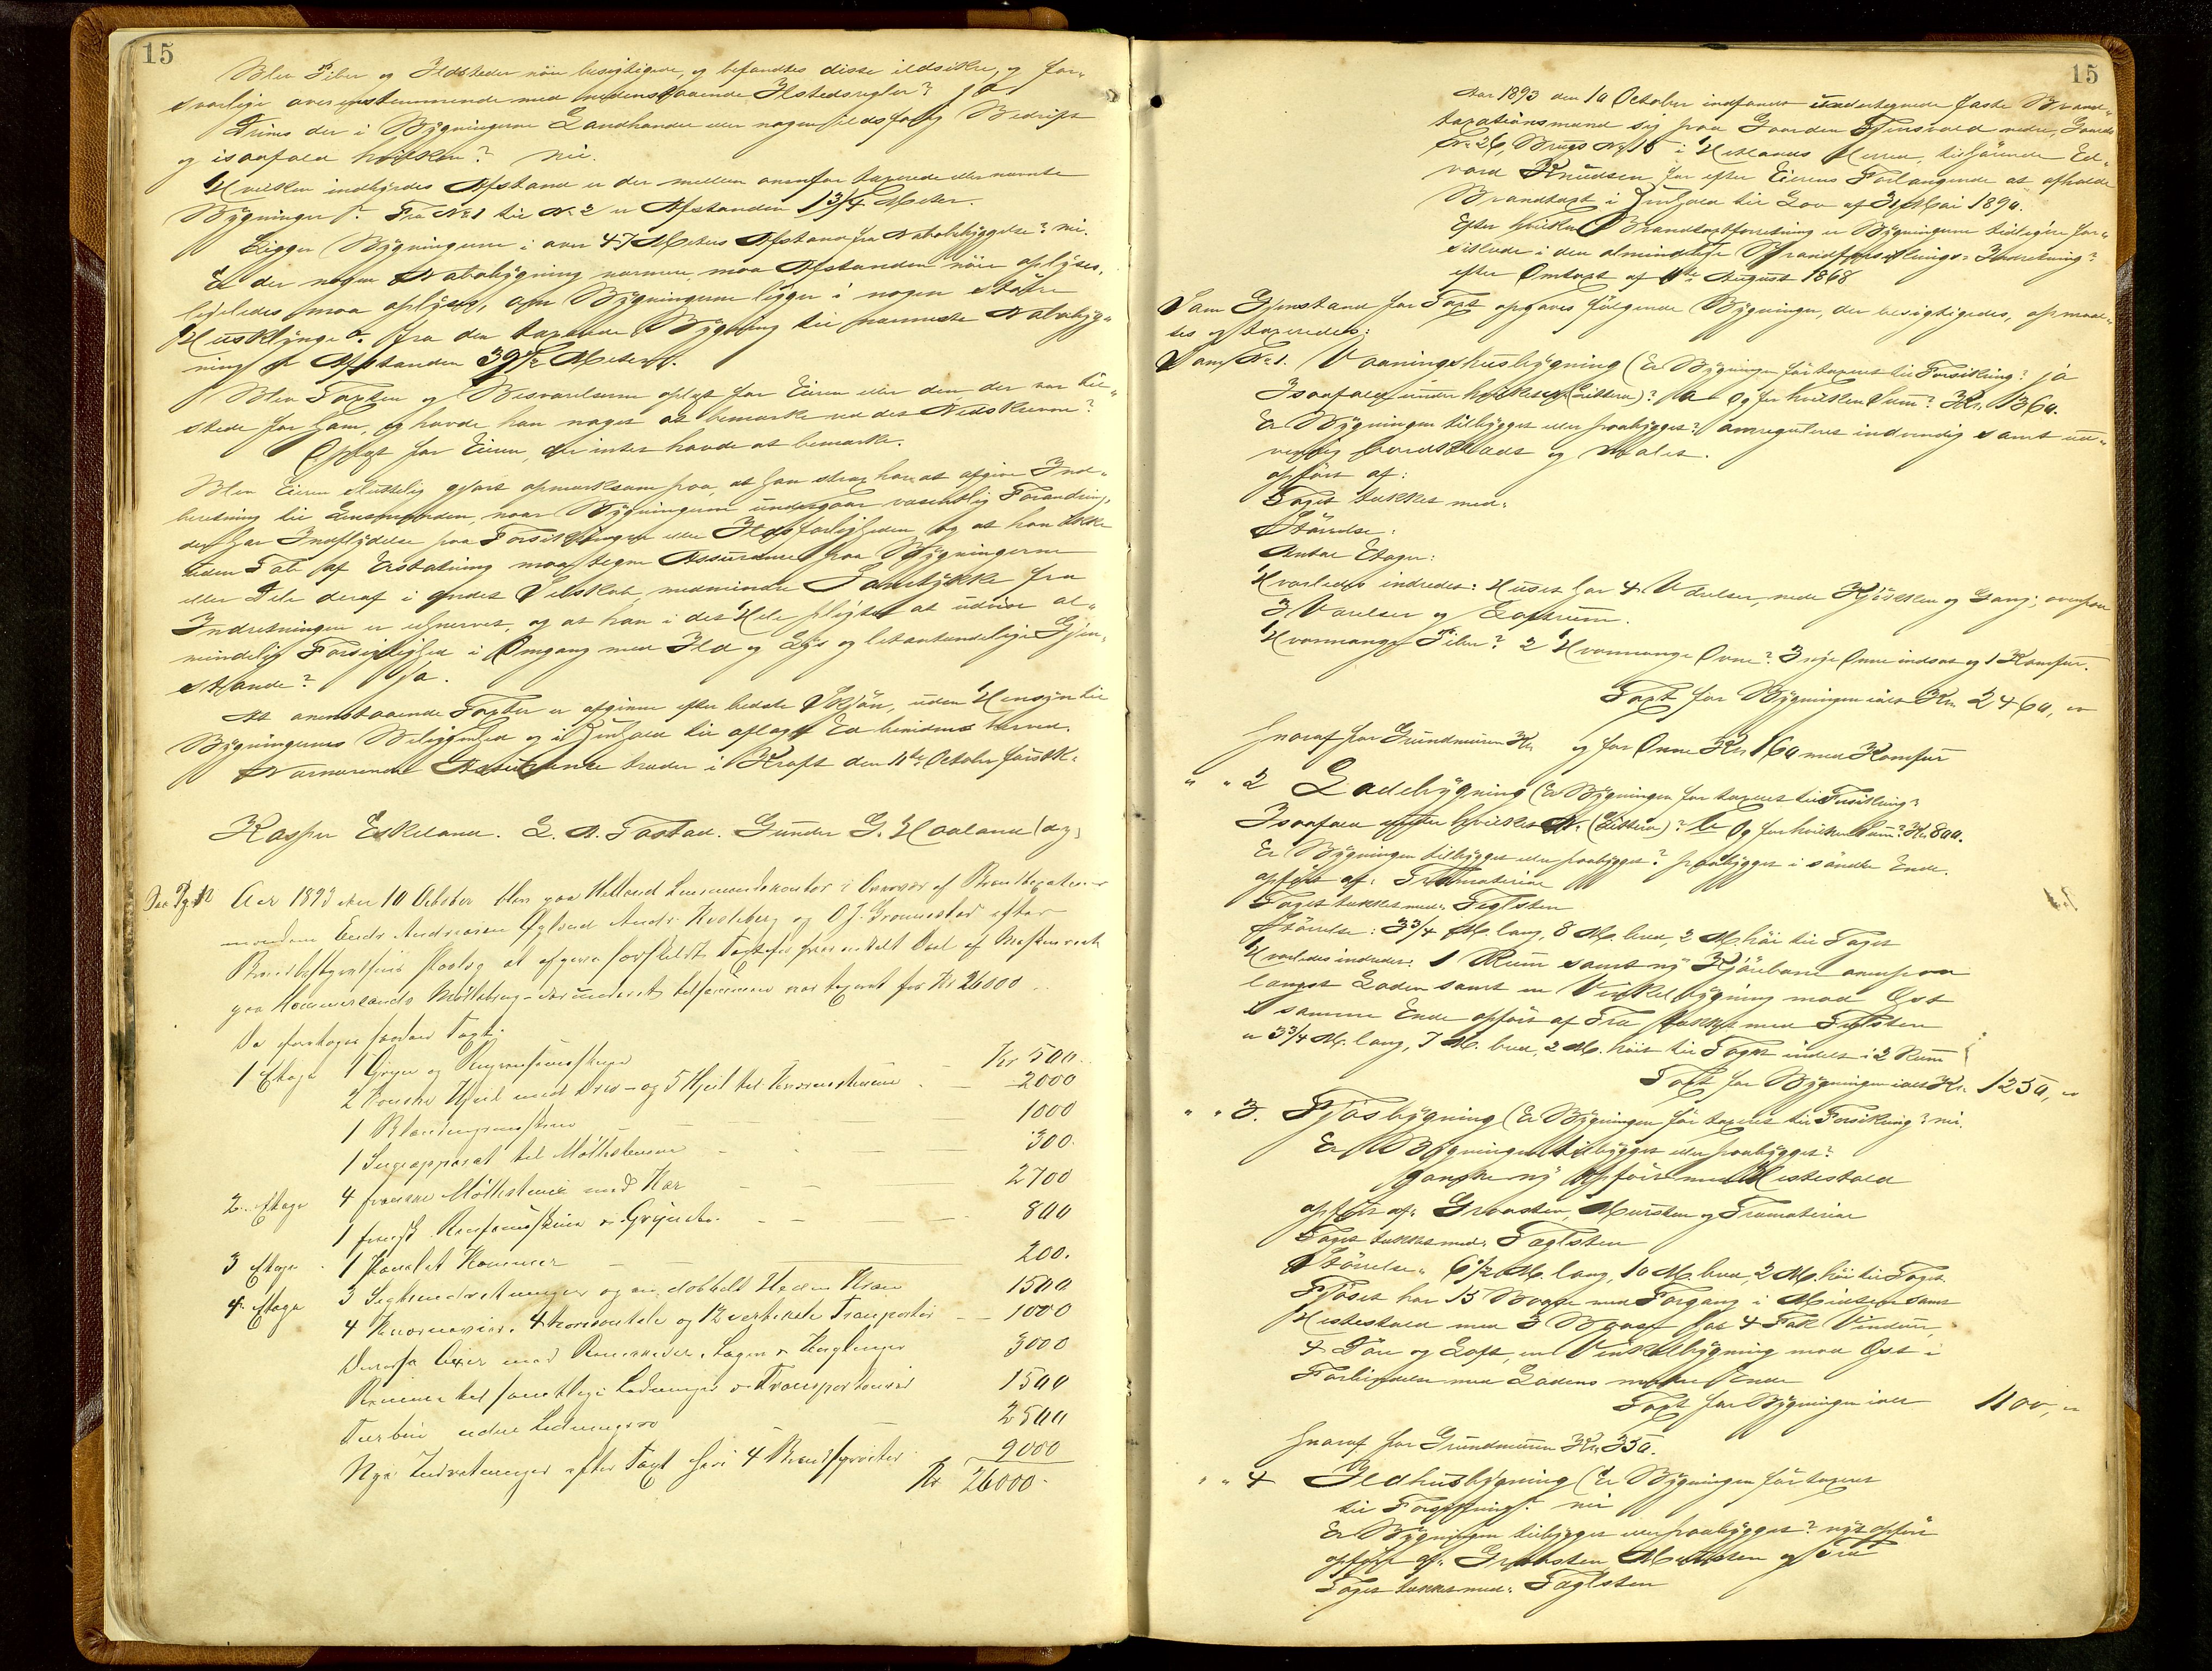 15
Blev Piber og Ildsteder nöie besigtigede, og befandtes disse ildsikre, og for-
svarlige overensstemmende med nedenstaaende Ildstedsregler? ja
Drives der i Bygningerne Landhandel eller nogen ildsfarlig Bedrift
og isaafald hvilken? nei.
Hvilken indbyrdes Afstand er der mellem ovenfor taxerede eller nævnte
Bygninger? Fra No 1 til No 2 er Afstanden 13/4 Meter.
Ligger Bygningerne i over 47 Meters Afstand fra Nabobebyggelse? nei.
Er der nogen Nabobygning nærmere, maa Afstanden nöie oplyses,
ligeledes maa oplyses, om Bygningerne ligger i nogen större
Husklynge. Fra den taxerede Bygning til nærmeste Nabobyg-
ning er Afstanden 39 1/2 Meter.
Blev Taxten og Besvarelserne oplæst for Eieren eller den, der var til-
stede for ham, og havde han noget at bemærke ved det Nedskrevne?
Oplæst for Eieren, der intet havde at bemærke.
Blev Eieren sluttelig gjort opmærksom paa, at han strax har at afgive Ind-
beretning til Lensmanden, naar Bygningerne undergaar væsentlig Forandring,
der har Indflydelse paa Forsikringen eller Ildsfarligheden, og at han ikke
uden Tab af Erstatning maa tegne Assurance paa Bygningerne
eller Dele deraf i andet Selskab, medmindre Samtykke fra
Indretningen er erhvervet, og at han i det Hele pligter at udvise al-
mindelig Forsigtighed i Omgang med Ild og Lys og letantændelige Gjen-
stande? Ja.
At ovenstaaende Taxter er afgivne efter bedste Skjön, uden Hensyn til
Bygningernes Beliggenhed og i Henhold til aflagt Ed bevidnes herved.
Nærværende Assurance træder i Kraft den 11te October förstk.
Kasper Eskeland. L. A. Tastad. Gunder G. Haaland
See Pg. 12 Aar 1893 den 10 October blev paa Hetland Lensmandskontor i Overvær af Brandtaxations-
mændene Endr Andreasen Öglænd Andr. Kvaleberg og O. J. Gronnestad efter
Brandbestyrelsens Paalæg at afgive særskilt Taxt for hver enkelt Deel af Maskineriet
paa Hommersands Möllebrug
Da foretoges saadan Taxt:
1 Etage 1 Gryn og Kr 500.
2 2000
1 1000
1 til Möllestenene 300.
2. Etage 4 franske Möllestene med Kar 2700
1 fransk 800
3 Etage 1 Kammer 200.
3 1500
4. Etage 4 4 horisontale og 12 vertikale Transportör 1000
3000
1500
Turbin uden Ledningsrör 2500
Nye Indretninger efter Taxt 9000
Kr 26000.
15
Aar 1893 den 10 October indfandt undertegnede faste Brand-
taxationsmænd sig paa Gaarden Tjensvold nedre, Gaards
No 26, Brugs No 15 i Hetlands Herred, tilhörende Ed-
vard Knudsen for efter Eierens Forlangende at afholde
Brandtaxt i Henhold til Lov af 31 Mai 1890.
Efter hvilken Brandtaxtforretning er Bygningerne tidligere for-
sikrede i den almindelige Brandforsikrings-Indretning?
efter Omtaxt af August 1868
Som Gjenstand for Taxt opgaves fölgende Bygninger, der besigtigedes, opmaal-
tes og taxeredes:
Som No 1. Vaaningshusbygning (Er Bygningen för taxeret til Forsikring? ja
Isaafald under hvilket No (Littera)? a Og for hvilken Sum? Kr. 1360.
Er Bygningen tilbygget eller paabygget? omreguleret indvendig samt ud-
vendig bordklædt og malet.
opfört af:
Taget tækket med:
Störrelse:
Antal Etager:
Hvorledes indredet: Huset har 4 Værelser, nede Kjökken og Gang; ovenpaa
3 Værelser og Loftrum.
Hvormange Piber? 2 Hvormange Ovne? 3 nye Ovne indsat og 1 Komfur.
Taxt for Bygningen ialt Kr. 2460,
Hvoraf for Grundmuren Kr. og for Ovne Kr. 160 med Komfur
" " 2 Ladebygning (Er Bygningen för taxeret til Forsikring?
Isaafald under hvilket No (Littera)? b Og for hvilken Sum? Kr. 800.
Er Bygningen tilbygget eller paabygget? paabygget i söndre Ende.
opfört af: Træmateriale
Taget tækket med: Teglsten
Störrelse: 3 3/4 M. lang, 8 M. bred, 2 M. höi til Taget
Hvorledes indredet: 1 Rum samt ny Kjörebane ovenpaa
langst Laden samt en Vinkelbygning mod Öst
i samme Ende opfört af Træ tækket med Teglsten
er 3 3/4 M. lang, 7 M. bred, 2 M. höit til Taget indelt i 2 Rum
Taxt for Bygningen ialt Kr. 1250,
" " 3. Fjösbygning (Er Bygningen för taxeret til Forsikring? nei.
Er Bygningen tilbygget eller paabygget?
ganske ny opfört med Hestestald
opfört af: Graasten, Mursten og Træmateriale
Taget tækket med: Taglsten
Störrelse: 6 1/2 M. lang, 10 M. bred, 2 M. höi til Taget.
Fjöset har 15 Baase med Forgang i Midten samt
Hestestald med 3 Baase har 4 Fak Vinduer,
4 Döre og Loft, en Vinkelbygning mod Öst i
Forbindelse med Ladens nordre Ende
Taxt for Bygningen ialt 1100,
Hvoraf for Grundmuren Kr. 350.
" " 4 Ildhusbygning (Er Bygningen för taxeret
til Forsikring? nei
Er Bygningen tilbygget eller paabygget? nyt opfört
opfört af: Graasten Mursten og Træ
Taget tækket med: Taglsten